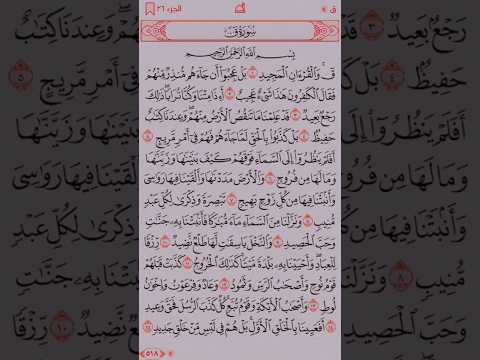 ق
الجزء ٢٦
سُورَةُ قٓ
بِسْمِ ٱللَّهِ ٱلرَّحْمَٰنِ ٱلرَّحِيمِ
قٓۚ وَٱلْقُرْءَانِ ٱلْمَجِيدِ ١ بَلْ عَجِبُوٓا۟ أَن جَآءَهُم مُّنذِرٌ مِّنْهُمْ
فَقَالَ ٱلْكَٰفِرُونَ هَٰذَا شَىْءٌ عَجِيبٌ ٢ أَءِذَا مِتْنَا وَكُنَّا تُرَابًا ۖ ذَٰلِكَ
رَجْعٌۢ بَعِيدٌ ٣ قَدْ عَلِمْنَا مَا تَنقُصُ ٱلْأَرْضُ مِنْهُمْ ۖ وَعِندَنَا كِتَٰبٌ
حَفِيظٌۢ ٤ بَلْ كَذَّبُوا۟ بِٱلْحَقِّ لَمَّا جَآءَهُمْ فَهُمْ فِىٓ أَمْرٍ مَّرِيجٍ ٥
أَفَلَمْ يَنظُرُوٓا۟ إِلَى ٱلسَّمَآءِ فَوْقَهُمْ كَيْفَ بَنَيْنَٰهَا وَزَيَّنَّٰهَا
وَمَا لَهَا مِن فُرُوجٍ ٦ وَٱلْأَرْضَ مَدَدْنَٰهَا وَأَلْقَيْنَا فِيهَا رَوَٰسِىَ
وَأَنۢبَتْنَا فِيهَا مِن كُلِّ زَوْجٍۭ بَهِيجٍ ٧ تَبْصِرَةً وَذِكْرَىٰ لِكُلِّ عَبْدٍ
مُّنِيبٍ ٨ وَنَزَّلْنَا مِنَ ٱلسَّمَآءِ مَآءً مُّبَٰرَكًا فَأَنۢبَتْنَا بِهِۦ جَنَّٰتٍ
وَحَبَّ ٱلْحَصِيدِ ٩ وَٱلنَّخْلَ بَاسِقَٰتٍ لَّهَا طَلْعٌ نَّضِيدٌ ١٠ رِّزْقًا
لِّلْعِبَادِ ۖ وَأَحْيَيْنَا بِهِۦ بَلْدَةً مَّيْتًا ۚ كَذَٰلِكَ ٱلْخُرُوجُ ١١ كَذَّبَتْ قَبْلَهُمْ
قَوْمُ نُوحٍ وَأَصْحَٰبُ ٱلرَّسِّ وَثَمُودُ ١٢ وَعَادٌ وَفِرْعَوْنُ وَإِخْوَٰنُ
لُوطٍ ١٣ وَأَصْحَٰبُ ٱلْأَيْكَةِ وَقَوْمُ تُبَّعٍ ۚ كُلٌّ كَذَّبَ ٱلرُّسُلَ فَحَقَّ وَعِيدِ ١٤
أَفَعَيِينَا بِٱلْخَلْقِ ٱلْأَوَّلِ ۚ بَلْ هُمْ فِى لَبْسٍ مِّنْ خَلْقٍ جَدِيدٍ ١٥
٥١٨
رَجْعٌۢ بَعِيدٌ ٣
حَفِيظٌۢ ٤ بَلْ
أَفَلَمْ يَنظُرُوٓا۟
وَمَا لَهَا مِن فُرُوجٍ
وَأَنۢبَتْنَا فِيهَا
مُّنِيبٍ ٨
وَحَبَّ ٱلْحَصِيدِ
وَعِندَنَا كِتَٰبٌ
فِىٓ أَمْرٍ مَّرِيجٍ ٥
بَنَيْنَٰهَا وَزَيَّنَّٰهَا
أَلْقَيْنَا فِيهَا رَوَٰسِىَ
وَذِكْرَىٰ لِكُلِّ عَبْدٍ
بِهِۦ جَنَّٰتٍ
نَّضِيدٌ ١٠ رِّزْقًا